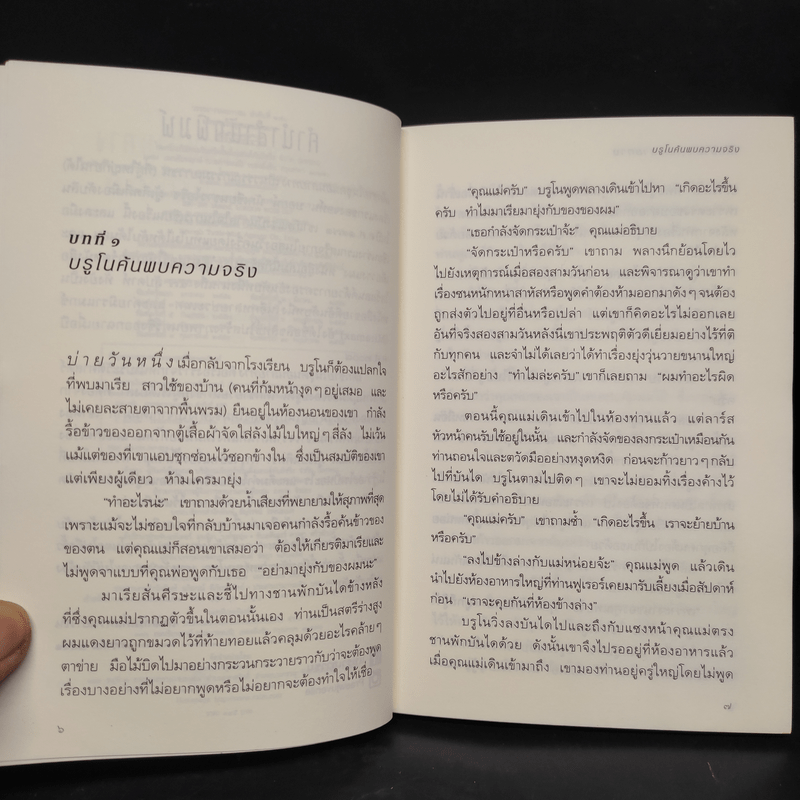 บทที่ ๑
บรูโนค้นพบความจริง
บ่ายวันหนึ่ง เมื่อกลับจากโรงเรียน บรูโนก็ต้องแปลกใจ
ที่พบมาเรีย สาวใช้ของบ้าน (คนที่ก้มหน้างุดๆ อยู่เสมอ และ
ไม่เคยละสายตาจากพื้นพรม) ยืนอยู่ในห้องนอนของเขา กำลัง
รื้อข้าวของออกจากตู้เสื้อผ้าจัดใส่ลังไม้ใบใหญ่ๆ สี่ลัง ไม่เว้น
แม้แต่ของที่เขาแอบซุกซ่อนไว้ซอกข้างใน ซึ่งเป็นสมบัติของเขา
แต่เพียงผู้เดียว ห้ามใครมายุ่ง
“ทำอะไรน่ะ” เขาถามด้วยน้ำเสียงที่พยายามให้สุภาพที่สุด
เพราะแม้จะไม่ชอบใจที่กลับบ้านมาเจอคนกำลังรื้อค้นข้าวของ
ของตน แต่คุณแม่ก็สอนเขาเสมอว่า ต้องให้เกียรติมาเรียและ
ไม่พูดจาแบบที่คุณพ่อพูดกับเธอ “อย่ามายุ่งกับของผมนะ”
มาเรียสั่นศีรษะและชี้ไปทางชานพักบันไดข้างหลัง
ที่ซึ่งคุณแม่ปรากฏตัวขึ้นในตอนนั้นเอง ท่านเป็นสตรีร่างสูง
ผมแดงยาวถูกขมวดไว้ที่ท้ายทอยแล้วคลุมด้วยอะไรคล้ายๆ
ตาข่าย มือไม้บิดไปมาอย่างกระวนกระวายราวกับว่าจะต้องพูด
เรื่องบางอย่างที่ไม่อยากพูดหรือไม่อยากจะต้องทำใจให้เชื่อ
๖
บรูโนค้นพบความจริง
“คุณแม่ครับ” บรูโนพูดพลางเดินเข้าไปหา “เกิดอะไรขึ้น
ครับ ทำไมมาเรียมายุ่งกับของของผม”
“เธอกำลังจัดกระเป๋าจ้ะ” คุณแม่อธิบาย
“จัดกระเป๋าหรือครับ” เขาถาม พลางนึกย้อนโดยไว
ไปยังเหตุการณ์เมื่อสองสามวันก่อน และพิจารณาดูว่าเขาทำ
เรื่องซนหนักหนาสาหัสหรือพูดคำต้องห้ามออกมาดังๆ จนต้อง
ถูกส่งตัวไปอยู่ที่อื่นหรือเปล่า แต่เขาก็คิดอะไรไม่ออกเลย
อันที่จริงสองสามวันหลังนี่เขาประพฤติตัวดีเยี่ยมอย่างไร้ที่ติ
กับทุกคน และจำไม่ได้เลยว่าได้ทำเรื่องยุ่งวุ่นวายขนานใหญ่
อะไรสักอย่าง “ทำไมล่ะครับ” เขาก็เลยถาม “ผมทำอะไรผิด
หรือครับ”
ตอนนี้คุณแม่เดินเข้าไปในห้องท่านแล้ว แต่ลาร์ส
หัวหน้าคนรับใช้อยู่ในนั้น และกำลังจัดของลงกระเป๋าเหมือนกัน
ท่านถอนใจและตวัดมืออย่างหงุดหงิด ก่อนจะก้าวยาวๆ กลับ
ไปที่บันได บรูโนตามไปติดๆ เขาจะไม่ยอมทิ้งเรื่องค้างไว้
โดยไม่ได้รับคำอธิบาย
“คุณแม่ครับ” เขาถามซ้ำ “เกิดอะไรขึ้น เราจะย้ายบ้าน
หรือครับ”
“ลงไปข้างล่างกับแม่หน่อยจ้ะ” คุณแม่พูด แล้วเดิน
นำไปยังห้องอาหารใหญ่ที่ท่านฟูเรอร์เคยมารับเลี้ยงเมื่อสัปดาห์
ก่อน “เราจะคุยกันที่ห้องข้างล่าง”
บรูโนวิ่งลงบันไดไปและถึงกับแซงหน้าคุณแม่ตรง
ชานพักบันไดด้วย ดังนั้นเขาจึงไปรออยู่ที่ห้องอาหารแล้ว
เมื่อคุณแม่เดินเข้ามาถึง เขามองท่านอยู่ครู่ใหญ่โดยไม่พูด
๗